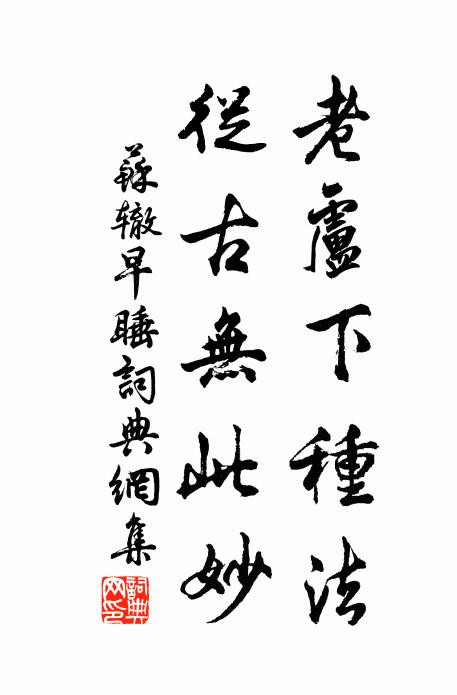 老盧下種法
從古無此妙
蘇辙早睡詞典網集
詞典网印